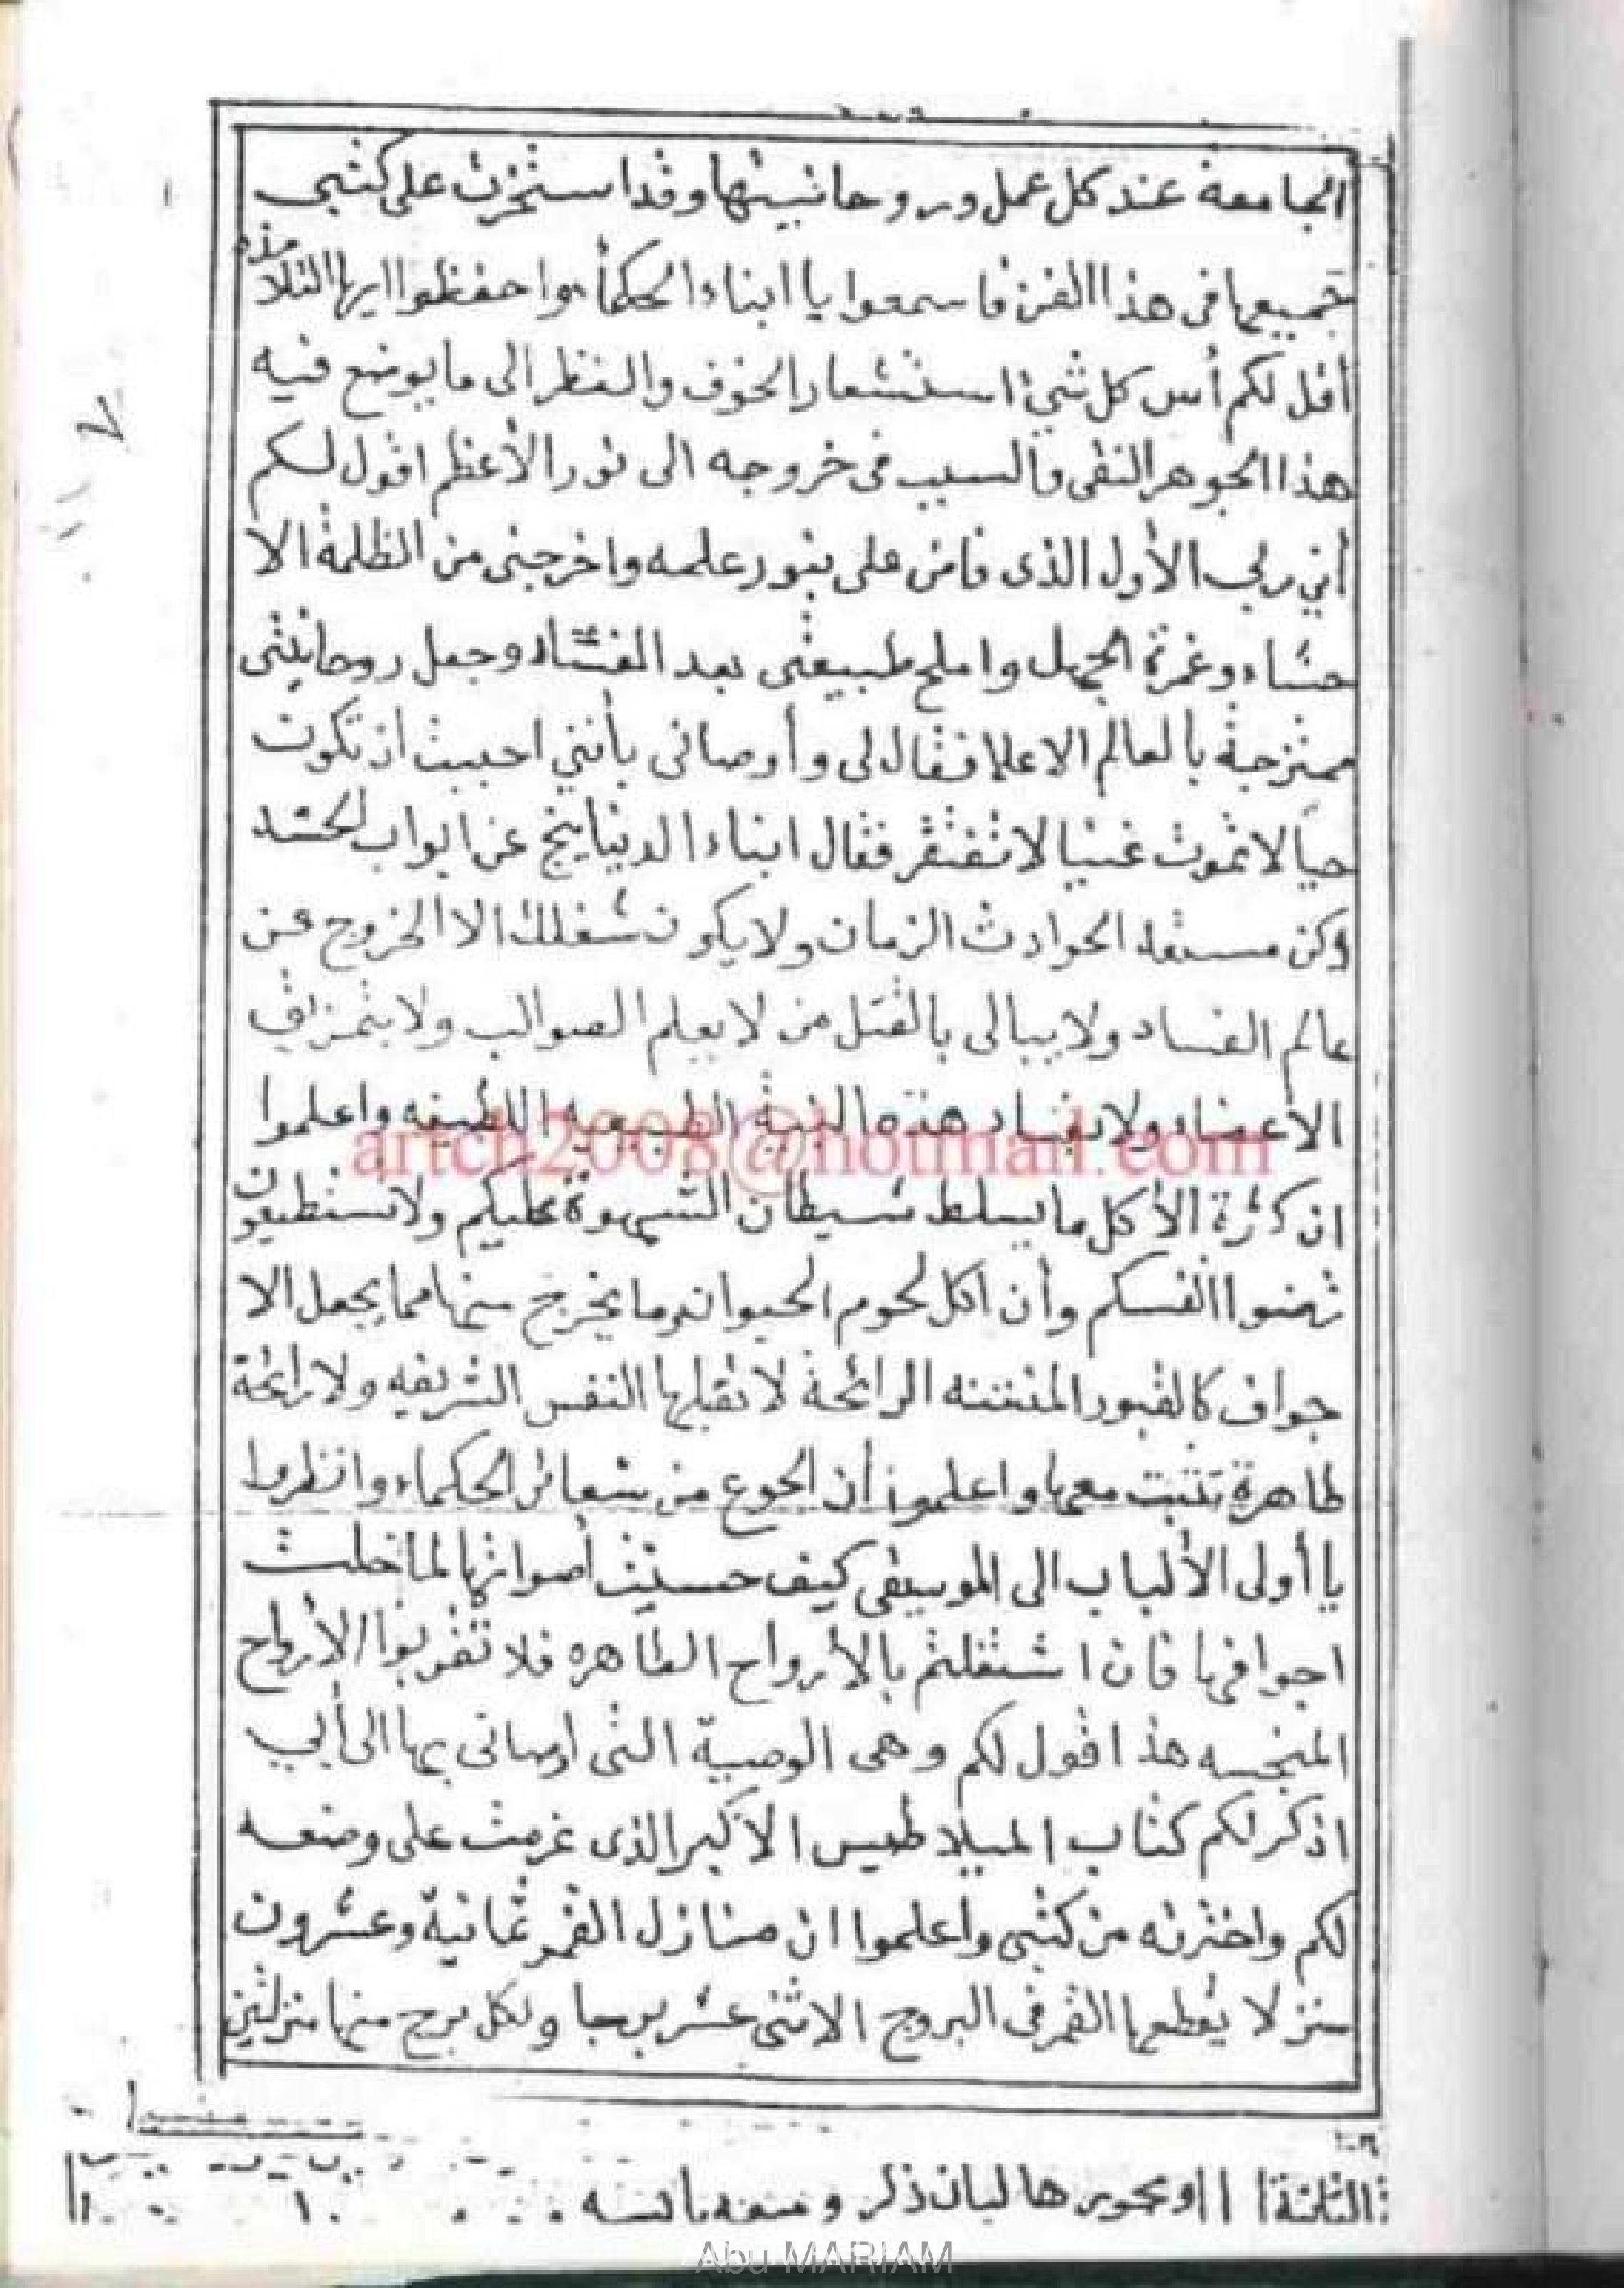 الجامعة عند كل عمل وروحانيتها وقد استخزت على كتبى
جميعها فى هذا الفن فاسمعوا يا ابناء الحكمأ واحفظوا ايها التلامذه
أقل لكم أس كل شئ استشعار الخوف والنظر الى ما يوضع فيه
هذا الجوهر النقى والسبب فى خروجه الى نور الأعظم اقول لكم
أنى ربى الأول الذى فاض على بنور علمه واخرجنى من الظلمة الا
حشاء وغمرة الجهل واملح طبيعتى بعد الفساد وجعل روحانيتى
ممتزجة بالعالم الاعلا فقال لى وأوصانى بأننى احببت ان تكون
حيا لا تموت غنيا لا تفتقر فقال ابناء الدنيا ينج عن ابواب الحسد
وكن مستعد الحوادث الزمان ولا يكون شغلك الا الخروج عن
عالم الفساد ولا يبالى بالقتل من لا يعلم الصوالب ولا بتمزيق
الأعضاء ولا بفساد هذه البنية الطبيعيه اللطيفه واعلموا
ان كثرة الأكل ما يسلط شيطان الشهوة عليكم ولا تستطيعون
تهنوا انفسكم وأن اكل لحوم الحيوان وما يخرج منها مما يجعل الا
جواف كالقبور المنتنه الرائحة لا تقبلها النفس الشريفه ولا رائحة
طاهرة تثبت معها واعلموا أن الجوع من شعائر الحكماء وانظروا
يا أولى الألباب الى الموسيقى كيف حسنت أصواتها لما خلت
اجوافها فان اشتغلتم بالأرواح الطاهره فلا تقربوا الأرواح
المنجسه هذا اقول لكم وهى الوصية التى اوصانى بها الى أبى
اذكر لكم كتاب الميلاطيس الأكبر الذى عزمت على وضعه
لكم واخترته من كتبى واعلموا ان منازل القمر ثمانية وعشرون
منزلا يقطعها القمر فى البروج الاثنى عشر برجا ولكل برج منها منزلتين
artch2008@hotmail.com
Abu MARIAM